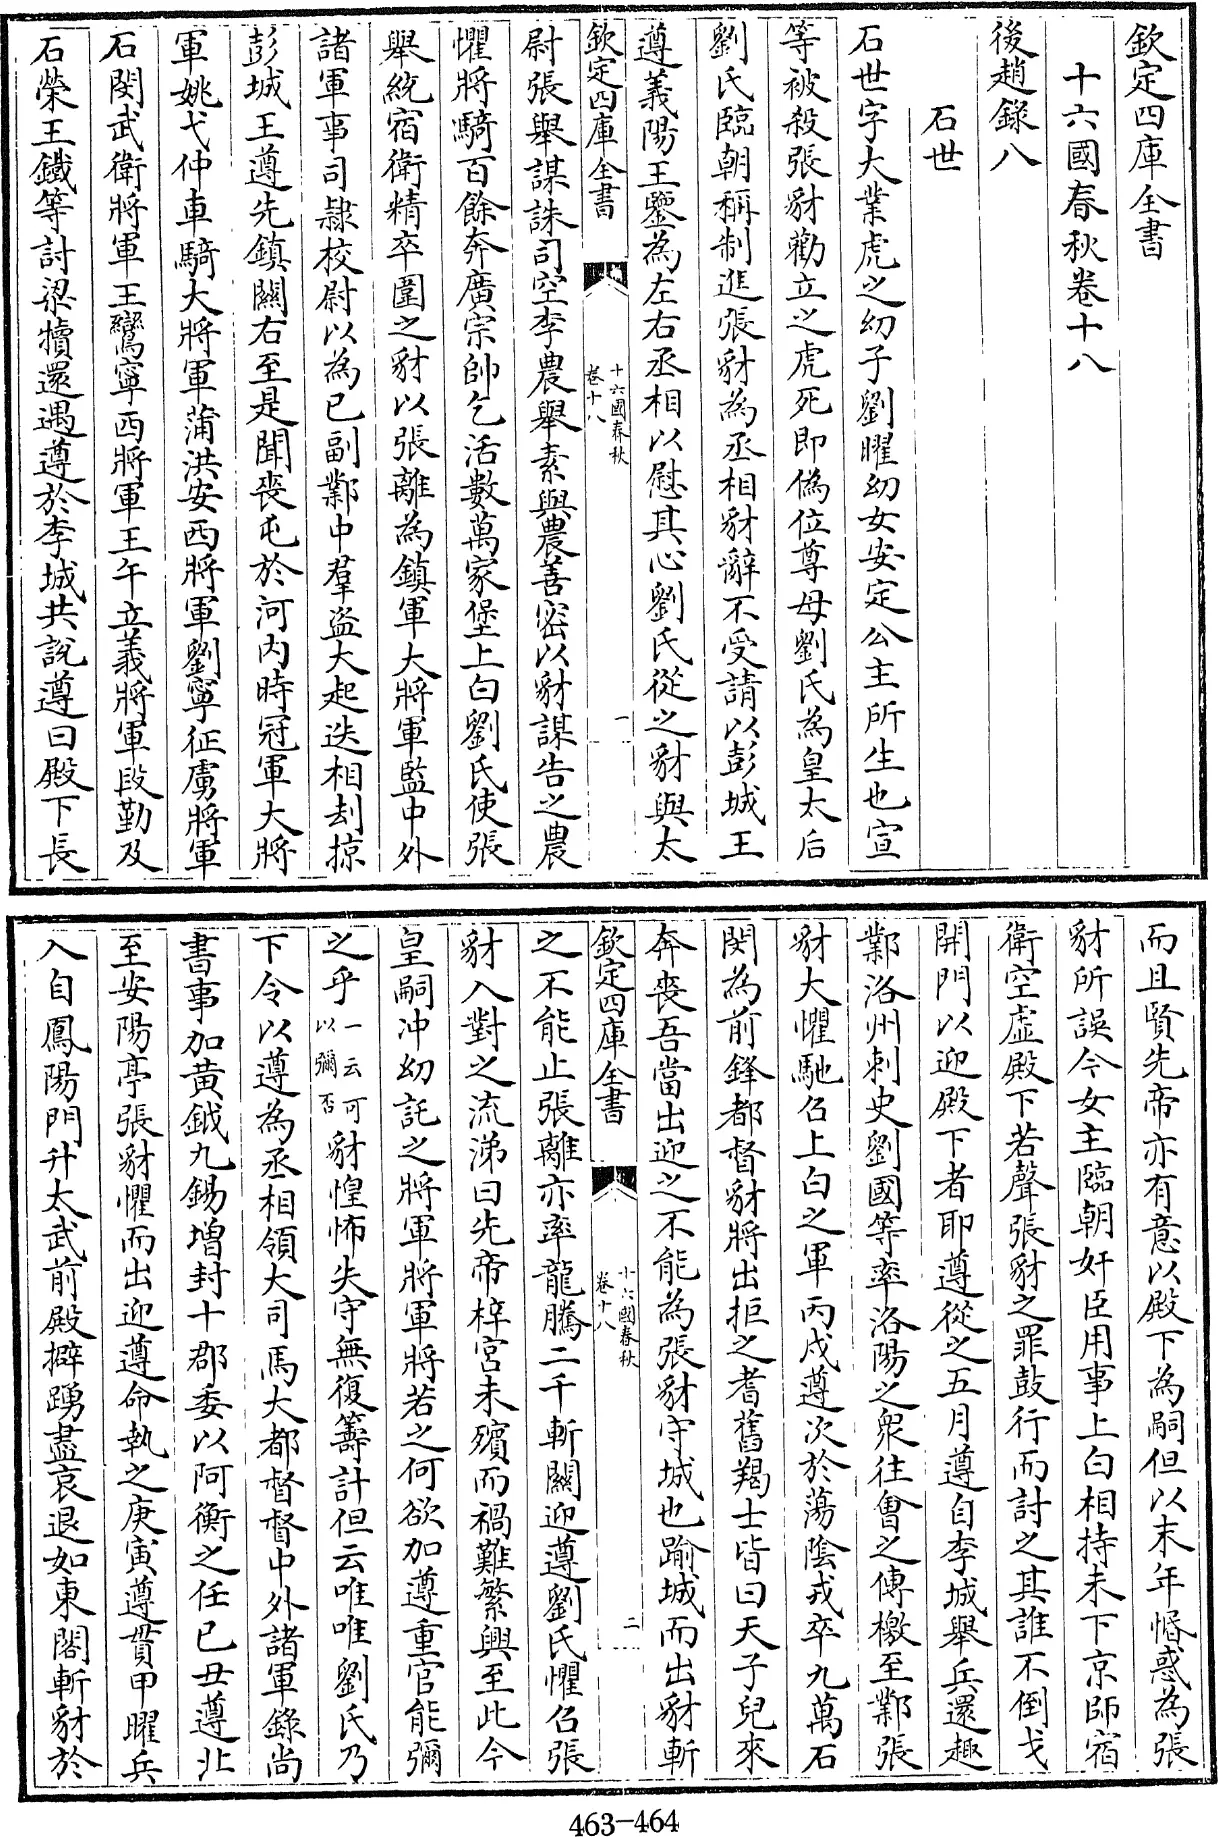 欽定四庫全書
十六國春秋卷十八
後趙錄八
石世
石世字大業虎之幼子劉曜幼女安定公主所生也宣
等被殺張豺勸立之虎死即偽位尊母劉氏為皇太后
劉氏臨朝稱制進張豺為丞相豺辭不受請以彭城王
遵義陽王鑒為左右丞相以慰其心劉氏從之豺與太
欽定四庫全書
十六國春秋
卷十八
一
尉張舉謀誅司空李農舉素與農善密以豺謀告之農
懼將騎百餘奔廣宗帥乞活數萬家堡上白劉氏使張
舉統宿衛精卒圍之豺以張離為鎮軍大將軍監中外
諸軍事司隷校尉以為已副鄴中羣盜大起迭相刦掠
彭城王遵先鎮關右至是聞喪屯於河内時冠軍大將
軍姚弋仲車騎大將軍蒲洪安西將軍劉寧征虜將軍
石閔武衛將軍王鸞寧西將軍王午立義將軍段勤及
石榮王鐵等討梁犢還遇遵於李城共說遵曰殿下長
而且賢先帝亦有意以殿下為嗣但以末年惛惑為張
豺所誤今女主臨朝奸臣用事上白相持未下京師宿
衛空虛殿下若聲張豺之罪鼓行而討之其誰不倒戈
開門以迎殿下者耶遵從之五月遵自李城舉兵還趣
鄴洛州刺史劉國等率洛陽之衆往會之傳檄至鄴張
豺大懼馳召上白之軍丙戌遵次於蕩隂戎卒九萬石
閔為前鋒都督豺將出拒之耆舊羯士皆曰天子兒來
奔喪吾當出迎之不能為張豺守城也踰城而出豺斬
欽定四庫全書
十六國春秋
卷十八
二
之不能止張離亦率龍騰二千斬關迎遵劉氏懼召張
豺入對之流涕曰先帝梓宮未殯而禍難繁興至此今
皇嗣冲幼託之將軍將軍將若之何欲加遵重官能彌
之乎一云可以彌否豺惶怖失守無復籌計但云唯唯劉氏乃
下令以遵為丞相領大司馬大都督督中外諸軍錄尚
書事加黃鉞九錫增封十郡委以阿衡之任已丑遵北
至安陽亭張豺懼而出迎遵命執之庚寅遵貫甲曜兵
入自鳳陽門升太武前殿擗踴盡哀退如東閣斬豺於
463-464